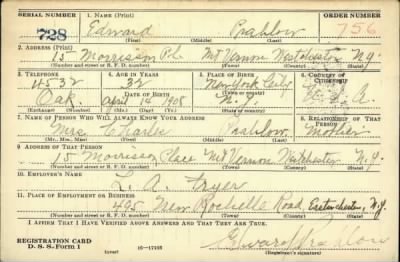 SERIAL NUMBER 1. NAME (Print) ORDER NUMBER
728 Edward Prahlow 756
(First) (Middle) (Last)
2. ADDRESS (Print)
15 Morrisson Pl. Mt Vernon Westchester N.Y.
(Number and street or R. F. D. number) (Town) (County) (State)
3. TELEPHONE 4. AGE IN YEARS 5. PLACE OF BIRTH 6. COUNTRY OF CITIZENSHIP
4532 32 New York City
DATE OF BIRTH (Town or county)
Oak April 14 1908 N.Y. U.S.A.
(Exchange) (Number) (Mo.) (Day) (Yr.) (State or country)
7. NAME OF PERSON WHO WILL ALWAYS KNOW YOUR ADDRESS 8. RELATIONSHIP OF THAT PERSON
Mrs. Charles Prahlow Mother
(Mr., Mrs., Miss) (First) (Middle) (Last)
9. ADDRESS OF THAT PERSON
15 Morrisson Place Mt Vernon Westchester N.Y.
(Number and street or R. F. D. number) (Town) (County) (State)
10. EMPLOYER'S NAME
L. A. Fryer
11. PLACE OF EMPLOYMENT OR BUSINESS
495 New Rochelle Road, Eastchester, N.Y.
(Number and street or R. F. D. number) (Town) (County) (State)
I AFFIRM THAT I HAVE VERIFIED ABOVE ANSWERS AND THAT THEY ARE TRUE.
REGISTRATION CARD
D. S. S. Form 1 (over) 16—17105 Edward Prahlow
(Registrant's signature)